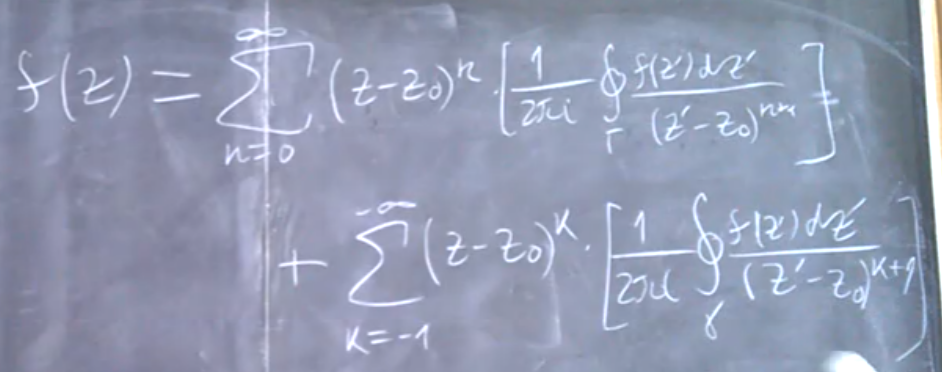 f(z) = \sum_{n=0}^{\infty} (z-z_0)^n \cdot \left[ \frac{1}{2\pi i} \oint_{\Gamma} \frac{f(z')dz'}{(z'-z_0)^{n+1}} \right]
+ \sum_{k=-1}^{-\infty} (z-z_0)^k \cdot \left[ \frac{1}{2\pi i} \oint_{\gamma} \frac{f(z')dz'}{(z'-z_0)^{k+1}} \right]